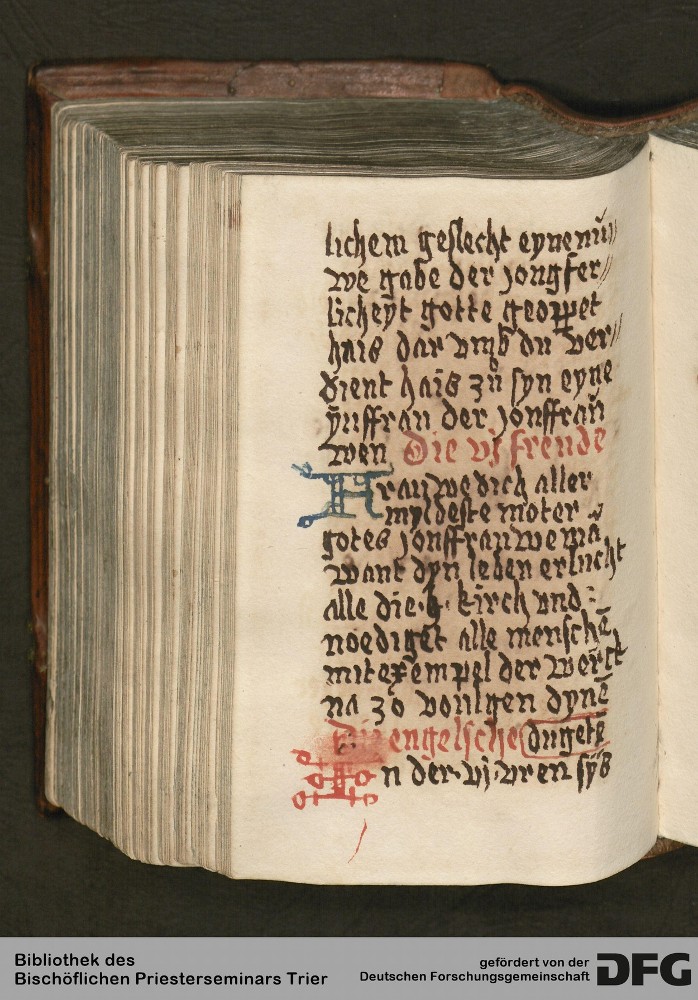 lichem geslecht eyne nuͤ//
we gabe der jongfer//
licheyt gotte geoppet
hais dar vmb du ver//
dient hais zu syn eyne
yunffrau der jonffrau
wen Die vj freude
Frauwe dich aller
myldeste moter
gotes jonffrauwe ma
want dyn leben erlucht
alle die · h · kirch vnd :
noediget alle menschē
mit exempel der werck
na zo voulgen dynē
engelsche dugets
n der · vj · vren sÿs
Bibliothek des
Bischöflichen Priesterseminars Trier
gefördert von der
Deutschen Forschungsgemeinschaft DFG